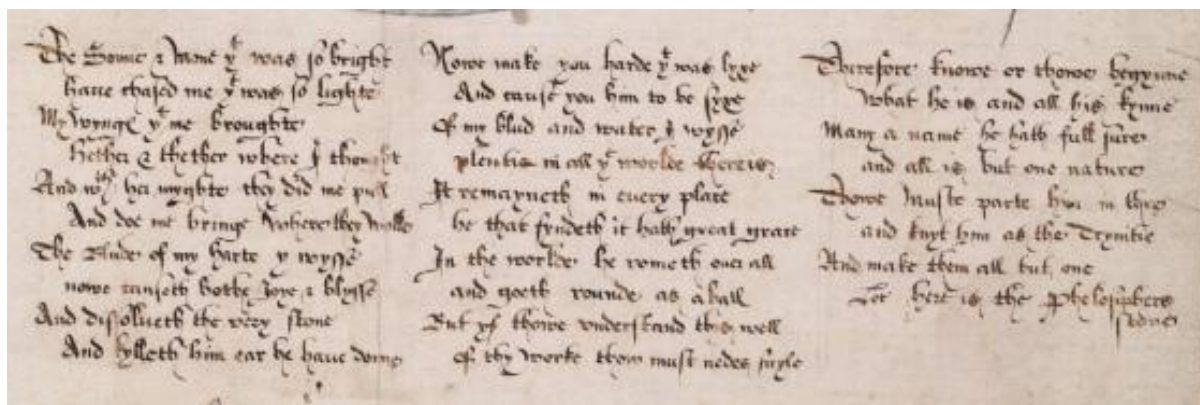 The Sonne & Mone yt was so bright
have chased me yt was so lighte
My wynge yt me broughte
hether & thether where I thought
And wth her myghte they did me pull
And doe me bringe where they wolle
The Blude of my harte y wysse
nowe causeth bothe Joye & blysse
And dissolueth the very stone
And kylleth him ear he have done
Nowe make you harde yt was lyxe
And cause you him to be fyxe
Of my blud and water I wysse
plentie in all ye worlde there is
It remayneth in every place
he that fyndeth it hath great grace
In the worlde he rometh over all
and goeth rounde as a ball
But yf thowe understand this well
Of thy worke thow must nedes
Therefore knowe or thowe begynne
what he is and all his kynne
Many a name he hath full sure
and all is but one nature
Thowe muste parte him in thre
and knyt him as the Trynitie
And make them all but one
Loe here is the Phelosiphers
stone